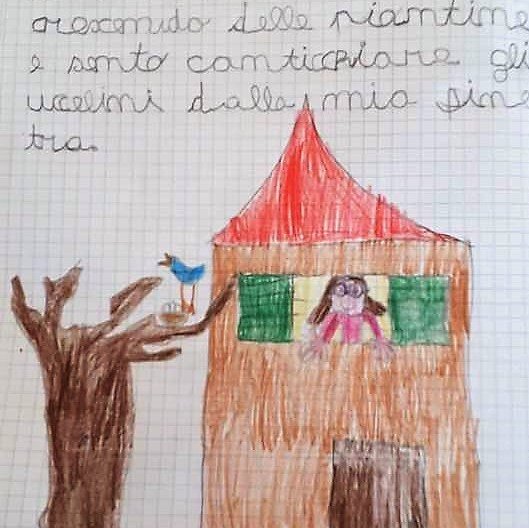 crescendo delle piantine
e sento canticchiare gli
uccelini dalla mia fine
tra.